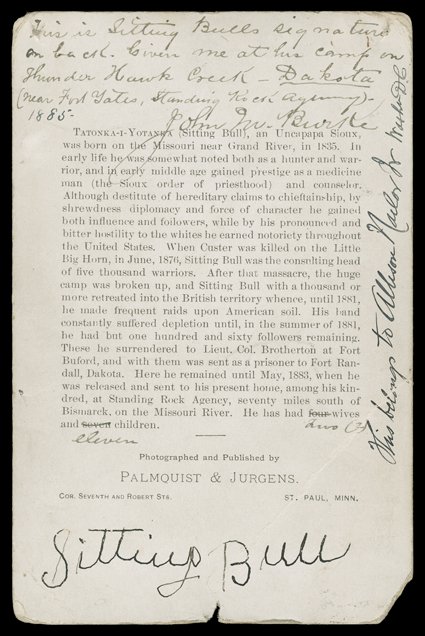 This is Sitting Bulls signature
on back. Given me at his camp on
Thunder Hawk Creek - Dakota
(near Fort Yates, Standing Rock Agency)-
1885- John M. Burke
TATONKA-I-YOTANKA (Sitting Bull), an Uncapapa Sioux,
was born on the Missouri near Grand River, in 1835. In
early life he was somewhat noted both as a hunter and war-
rior, and in early middle age gained prestige as a medicine
man (the Sioux order of priesthood) and counselor.
Although destitute of hereditary claims to chieftainship, by
shrewdness diplomacy and force of character he gained
both influence and followers, while by his pronounced and
bitter hostility to the whites he earned notoriety throughout
the United States. When Custer was killed on the Little
Big Horn, in June, 1876, Sitting Bull was the consulting head
of five thousand warriors. After that massacre, the huge
camp was broken up, and Sitting Bull with a thousand or
more retreated into the British territory whence, until 1881,
he made frequent raids upon American soil. His band
constantly suffered depletion until, in the summer of 1881,
he had but one hundred and sixty followers remaining.
These he surrendered to Lieut. Col. Brotherton at Fort
Buford, and with them was sent as a prisoner to Fort Ran-
dall, Dakota. Here he remained until May, 1883, when he
was released and sent to his present home, among his kin-
dred, at Standing Rock Agency, seventy miles south of
Bismarck, on the Missouri River. He has had four wives
and seven children. two (2)
eleven
Photographed and Published by
PALMQUIST & JURGENS.
COR. SEVENTH AND ROBERT STS. ST. PAUL, MINN.
Sitting Bull
This belongs to Allison Nailor Jr Wash D.C.